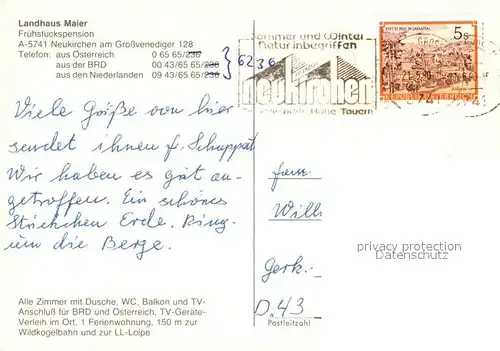 Landhaus Maier
Frühstückspension
A-5741 Neukirchen am Großvenediger 128
Telefon: aus Österreich 0 65 65/236
aus der BRD 00 43/65 65/236
aus den Niederlanden 09 43/65 65/236
6236
Sommer und Winter
Naturinbegriffen
neukirchen
Hohe Tauern
5s
Viele Grüße von hier
sendet ihnen f. Schuppart
Wir haben es gut an-
getroffen. Ein schönes
Stückchen Erde. Ring-
um die Berge.
Fam.
Will
Gerk.-
D.43
Postleitzahl
privacy protection
watermark
Alle Zimmer mit Dusche, WC, Balkon und TV-
Anschluß für BRD und Österreich, TV-Geräte-
Verleih im Ort, 1 Ferienwohnung, 150 m zur
Wildkogelbahn und zur LL-Loipe